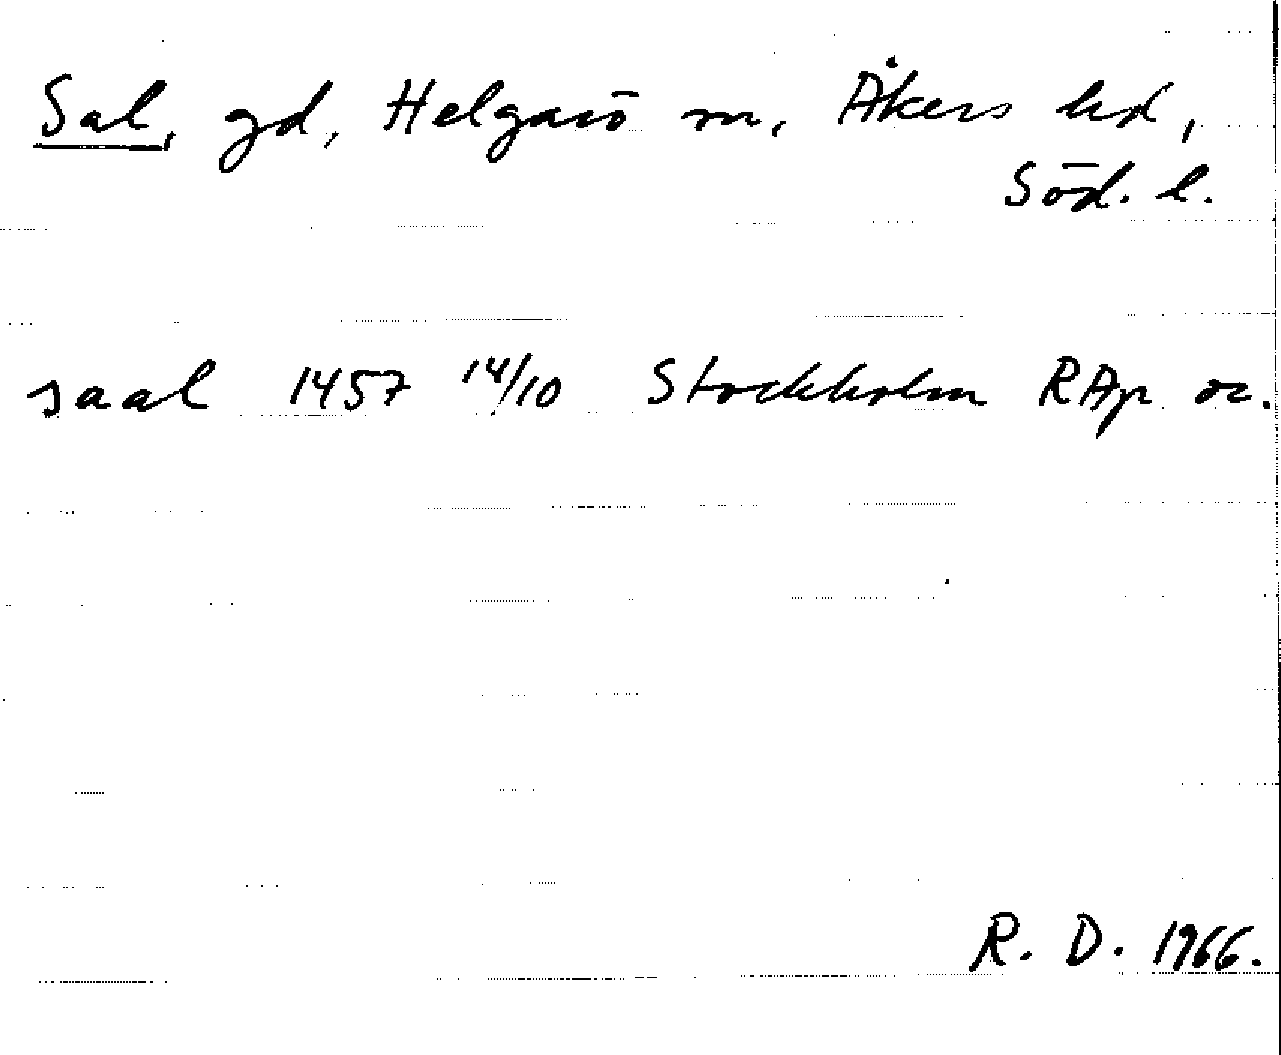 Sal, gd, Helgarö sn, Åkers hd,
Söd. l.
saal 1457 14/10 Stockholm RAp or.
R. D. 1966.